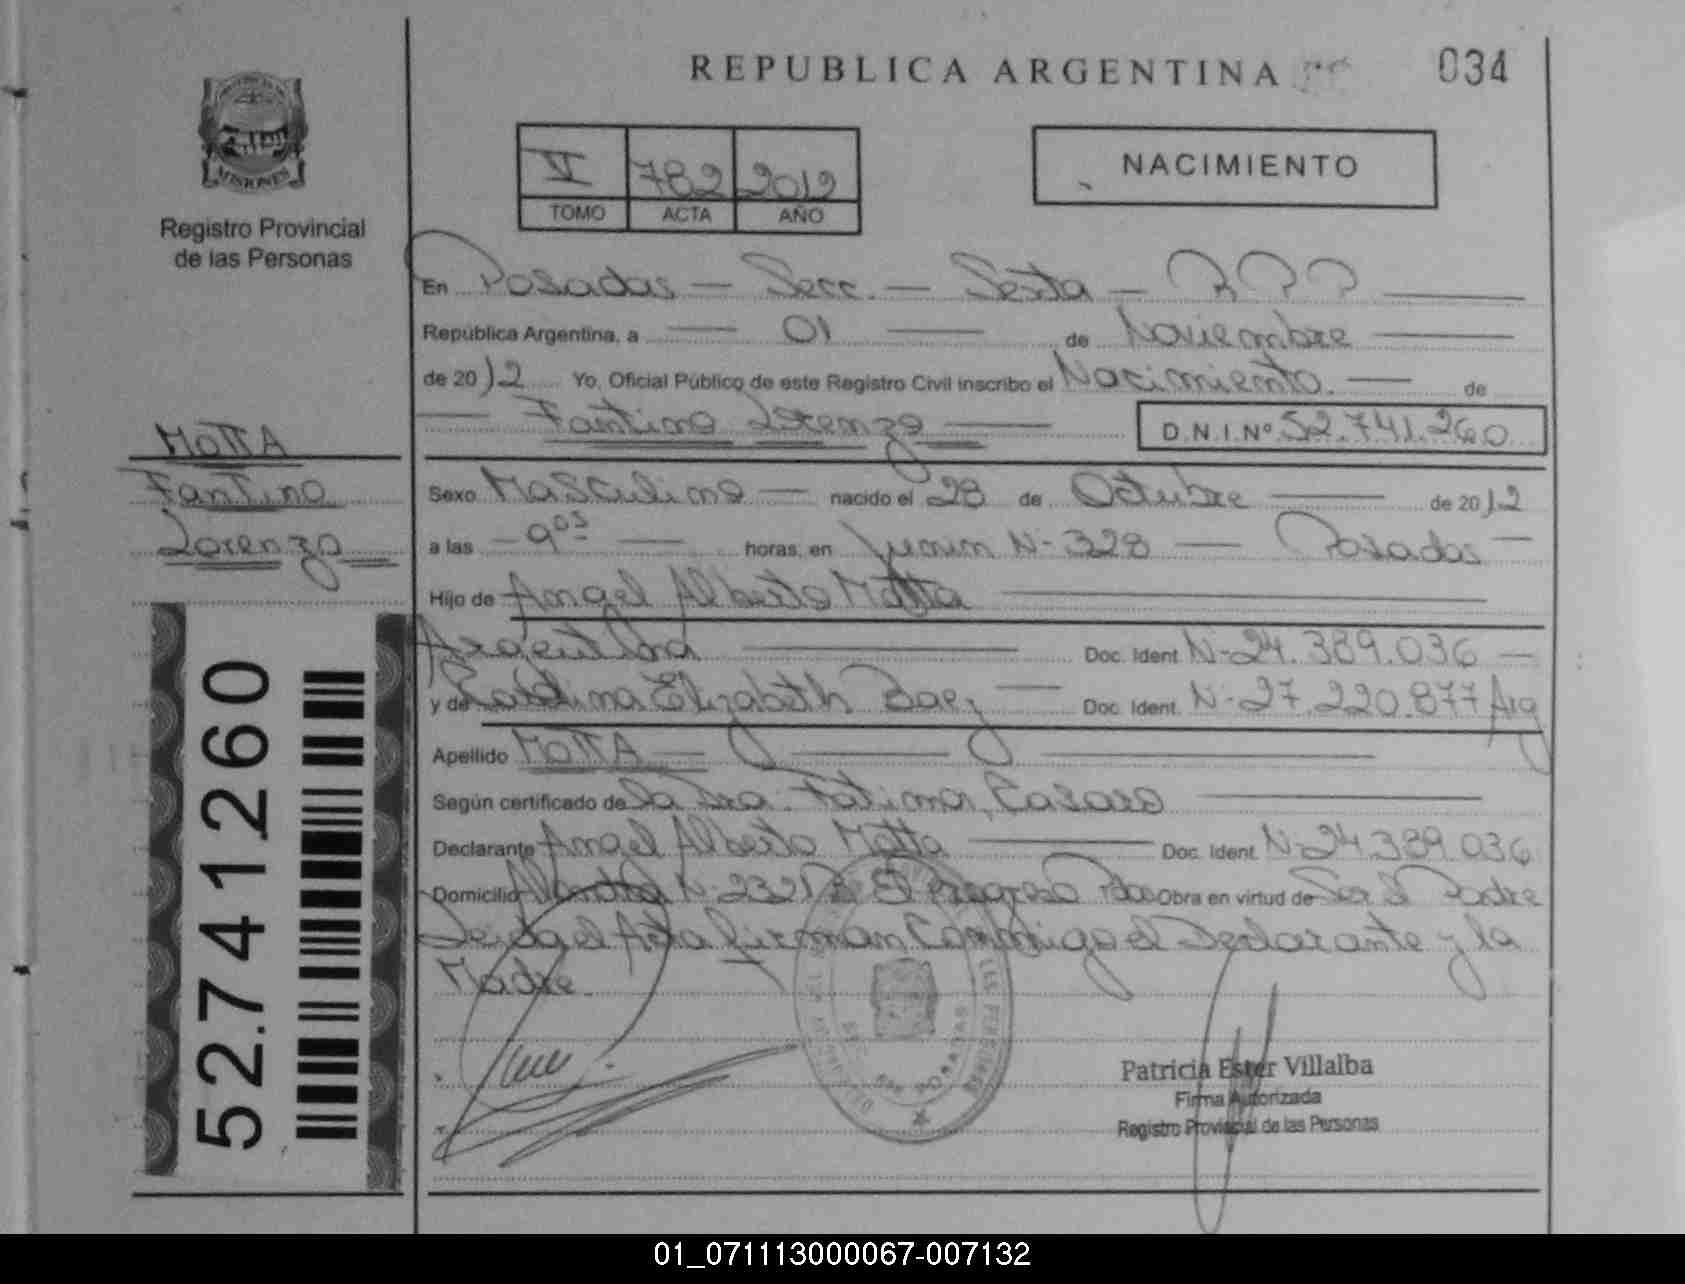 REPUBLICA ARGENTINA
034
MISIONES
Registro Provincial
de las Personas
VI 782 2012
TOMO ACTA AÑO
NACIMIENTO
En Posadas — Secc. — Sexta — R P P
República Argentina, a — 01 — de Noviembre
de 2012 Yo, Oficial Público de este Registro Civil inscribo el Nacimiento. — de
— Fantino Lorenzo — D.N.I.Nº 52.741.260
MOTTA
Fantino
Lorenzo
Sexo Masculino — nacido el 28 de Octubre — de 2012
a las — 9 05 — horas, en Junin N- 328 — Posadas —
Hijo de Angel Alberto Motta
Argentina — Doc. Ident. N- 24.389.036 —
y de Elizabeth Baez — Doc. Ident. N- 27.220.877 Arg
Apellido MOTTA —
Según certificado de la Dra. Fatima, Casaro
Declarante Angel Alberto Motta — Doc. Ident. N- 24.389.036
Domicilio N- 2321 El Progreso Pdas Obra en virtud de Ser el Padre
Leida el Acta firman Conmigo el Declarante y la
Madre.
52.741260
POSADAS
Patricia Ester Villalba
Firma Autorizada
Registro Provincial de las Personas
01_071113000067-007132